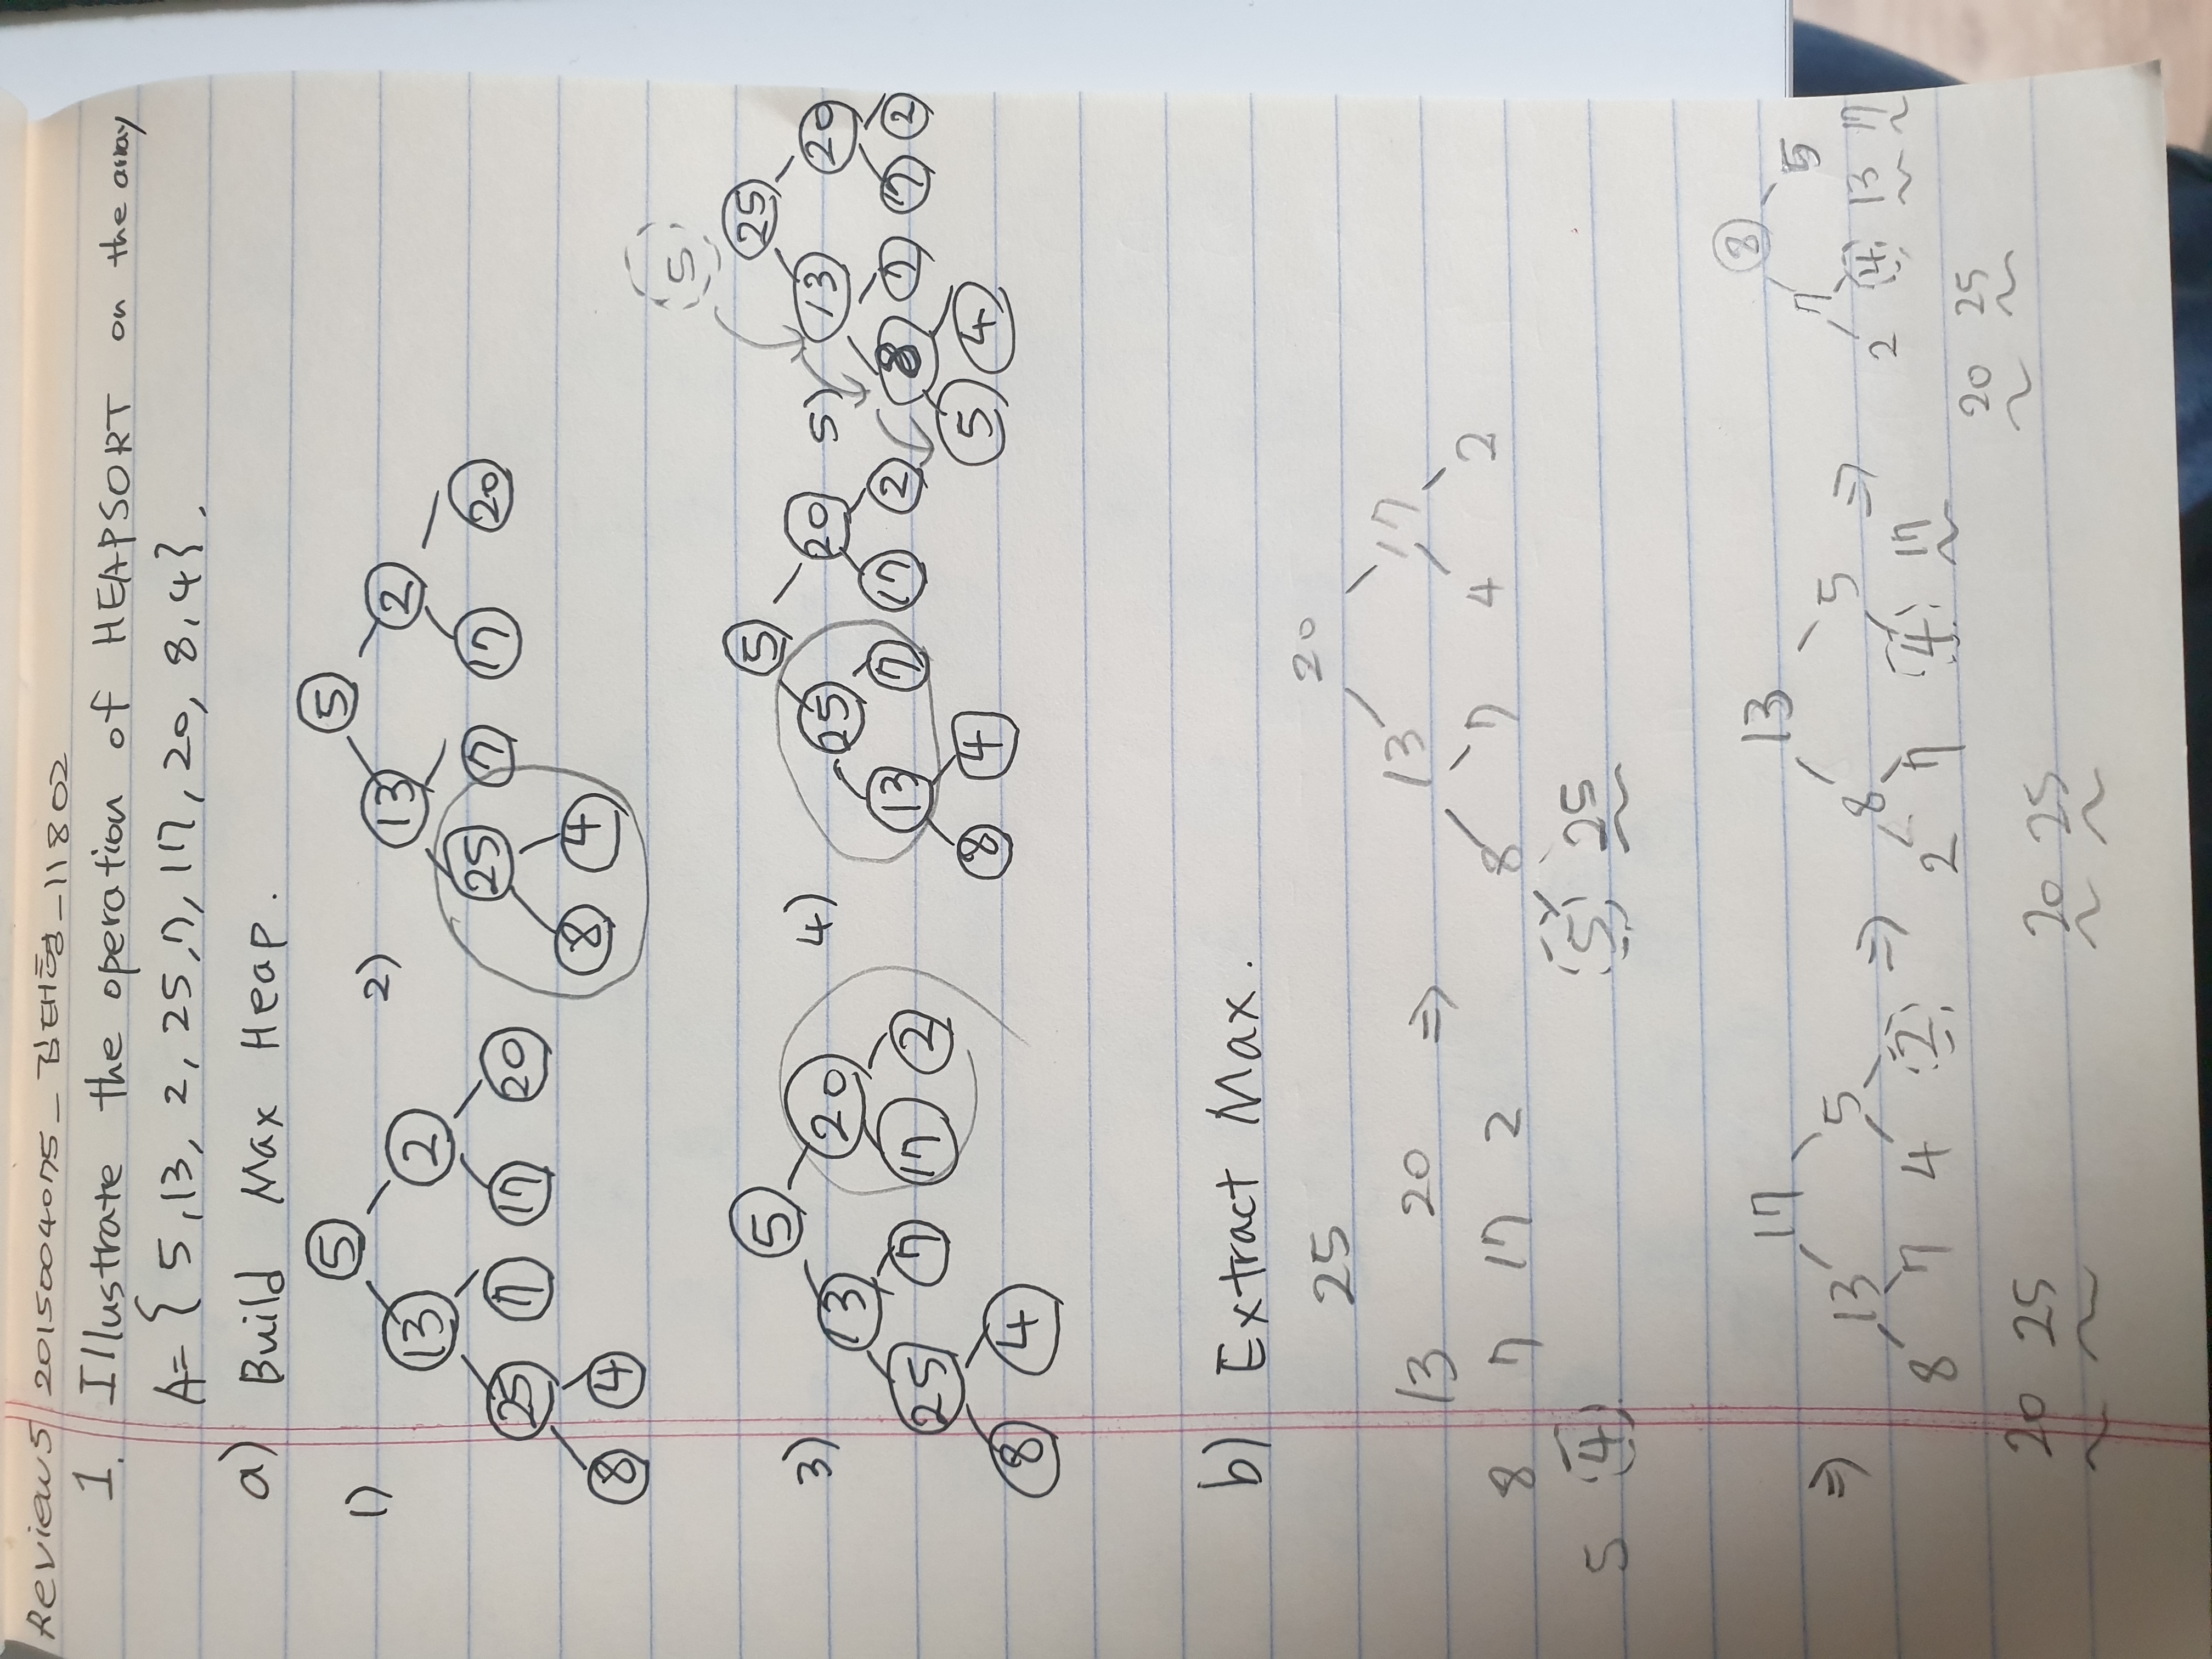 Review5 2015004075_김태형_11802
1. Illustrate the operation of HEAPSORT on the array
A= { 5, 13, 2, 25, 7, 17, 20, 8, 4}.
a) Build Max Heap.
1)
5
13 2
25 7 17 20
8 4
2)
5
13 2
25 7 17 20
8 4
3)
5
13 20
25 7 17 2
8 4
4)
5
25 20
13 7 17 2
8 4
5)
5
25
13 20
8 7 17 2
5 4
b) Extract Max.
25
13 20
8 7 17 2
5 4
⇒
20
13 17
8 7 4 2
5 25
⇒
17
13 5
8 7 4 2
20 25
⇒
13
8 5
2 7 4 17
20 25
⇒
8
7 5
2 4 13 17
20 25